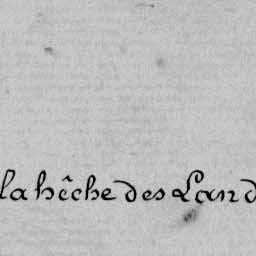 la hêche des Land